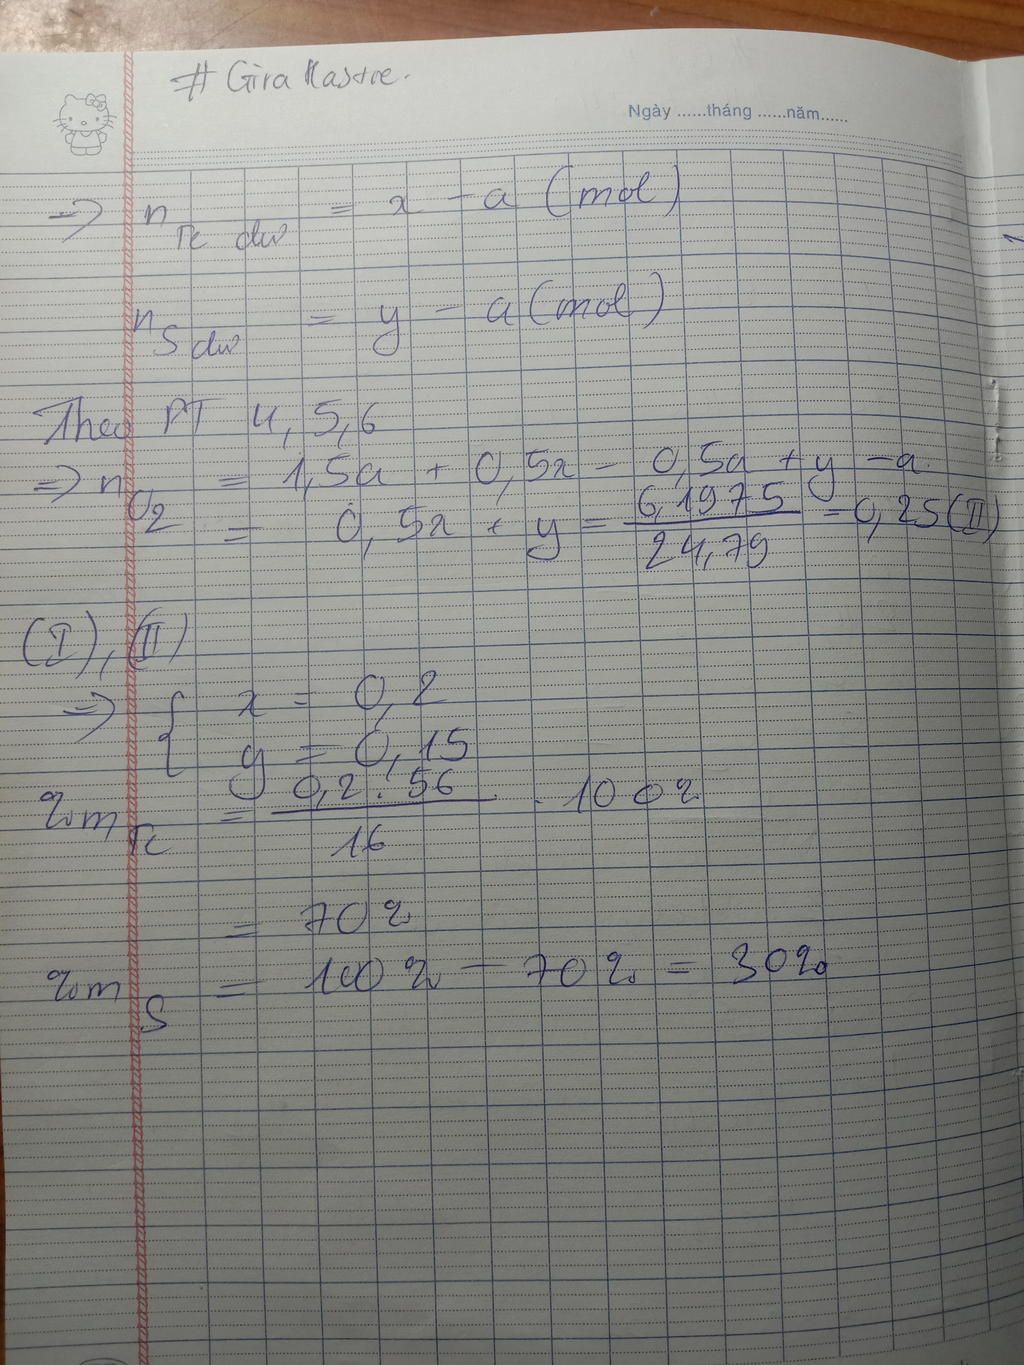 # Gira Rastre.
Ngày ......tháng ......năm......
=> n Fe dư = x - a (mol)
n S dư = y - a (mol)
Theo PT 4, 5, 6
=> n O2 = 1,5a + 0,5x - 0,5a + y - a.
= 0,5x + y = 6,1975 / 24,79 = 0,25 (II)
(I), (II)
=> { x = 0,2
y = 0,15
%m Fe = 0,2 . 56 / 16 . 100%
= 70%
%m S = 100% - 70% = 30%